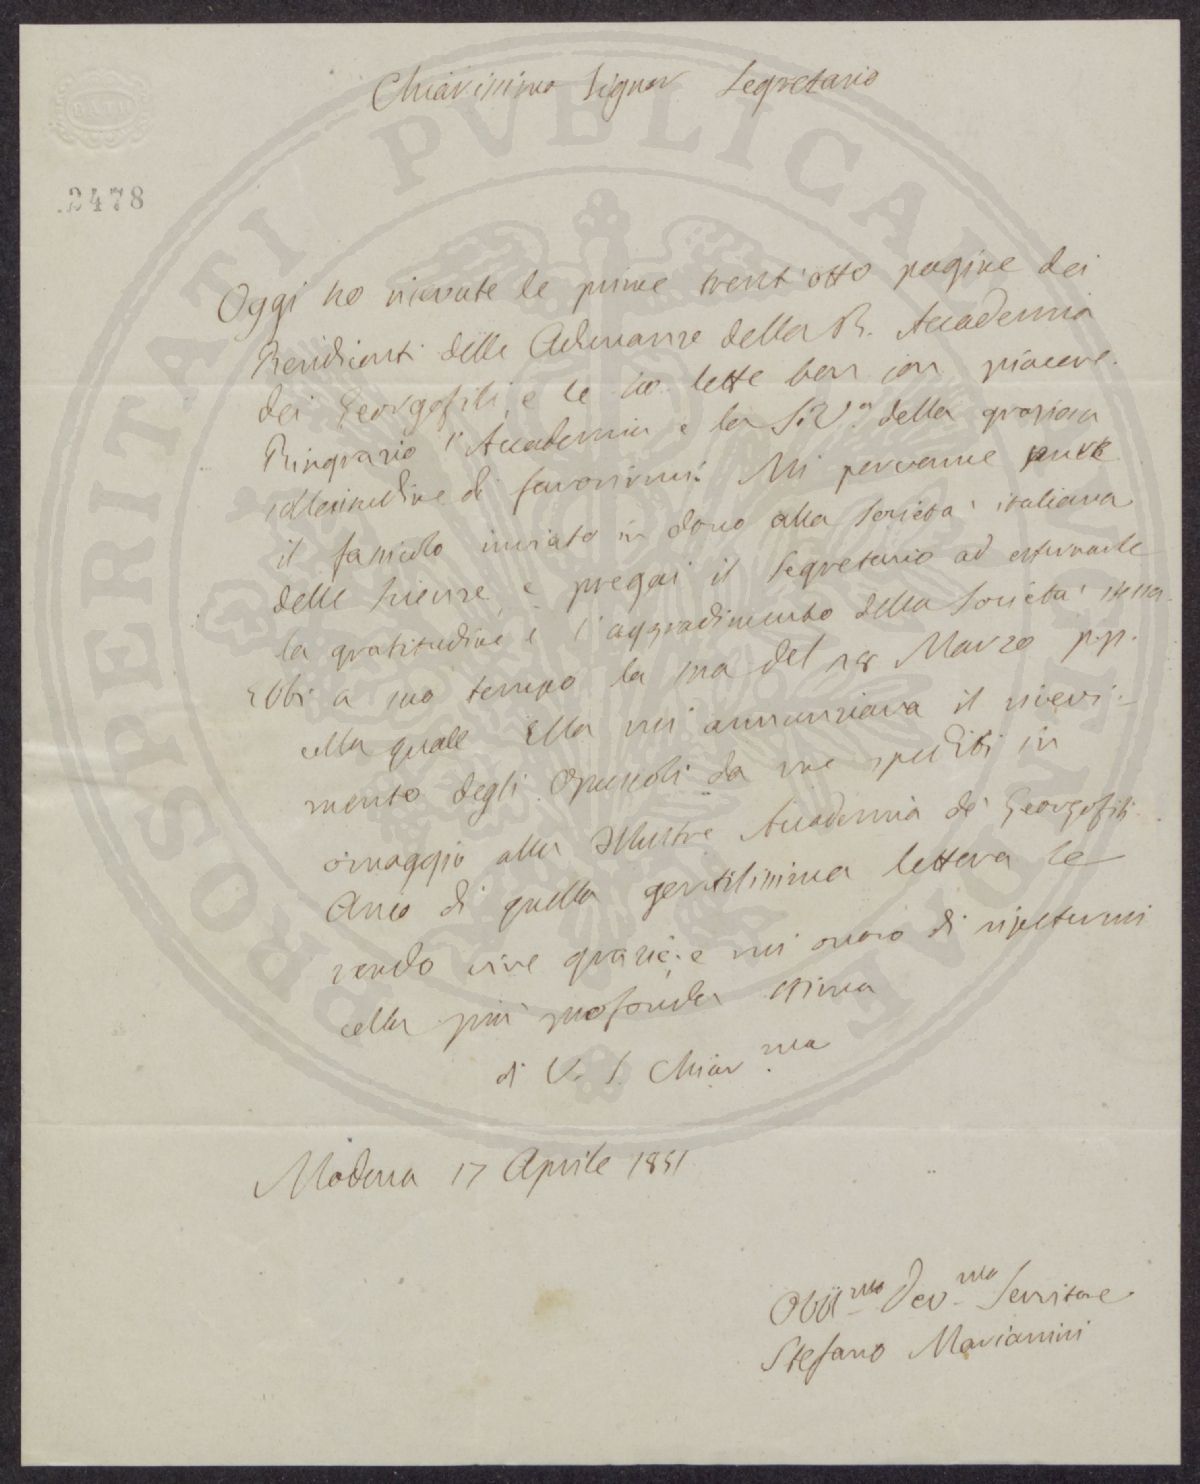 Chiarissimo Signor Segretario
BATH
2478
PROSPERITATI PVBLICAE AVGENDAE
Oggi ho ricevute le prime trent'otto pagine dei
Rendiconti delle Adunanze della R. Accademia
dei Georgofili, e le ho lette ben con piacere.
Ringrazio l'Accademia e la S. V.a della graziosa
sollecitudine di favorirmi. Mi pervenne pure
il fascicolo inviato in dono alla Società italiana
delle Scienze, e pregai il Segretario ad esternarle
la gratitudine e l'aggradimento della Società stessa.
Ebbi a suo tempo la sua del 18 Marzo p.p.
colla quale Ella mi annunziava il ricevi-
mento degli Opuscoli da me spediti in
omaggio alla Illustre Accademia de' Georgofili.
Anco di quella gentilissima lettera le
rendo vive grazie; e mi onoro di ripetermi
colla più profonda stima
di V. S. Chiar.ma
Modena 17 Aprile 1851
Obbl.mo Dev.mo Servitore
Stefano Marianini